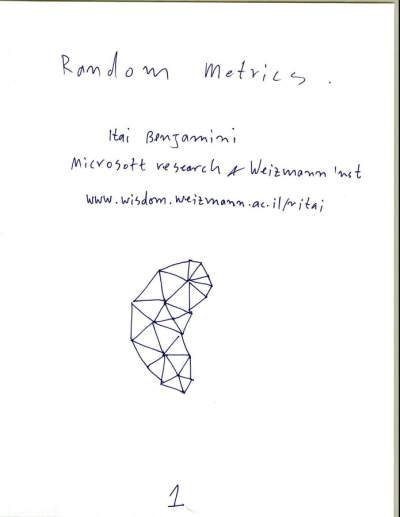 Random Metrics.
Itai Benjamini
Microsoft research & Weizmann inst
www.wisdom.weizmann.ac.il/~itai
1